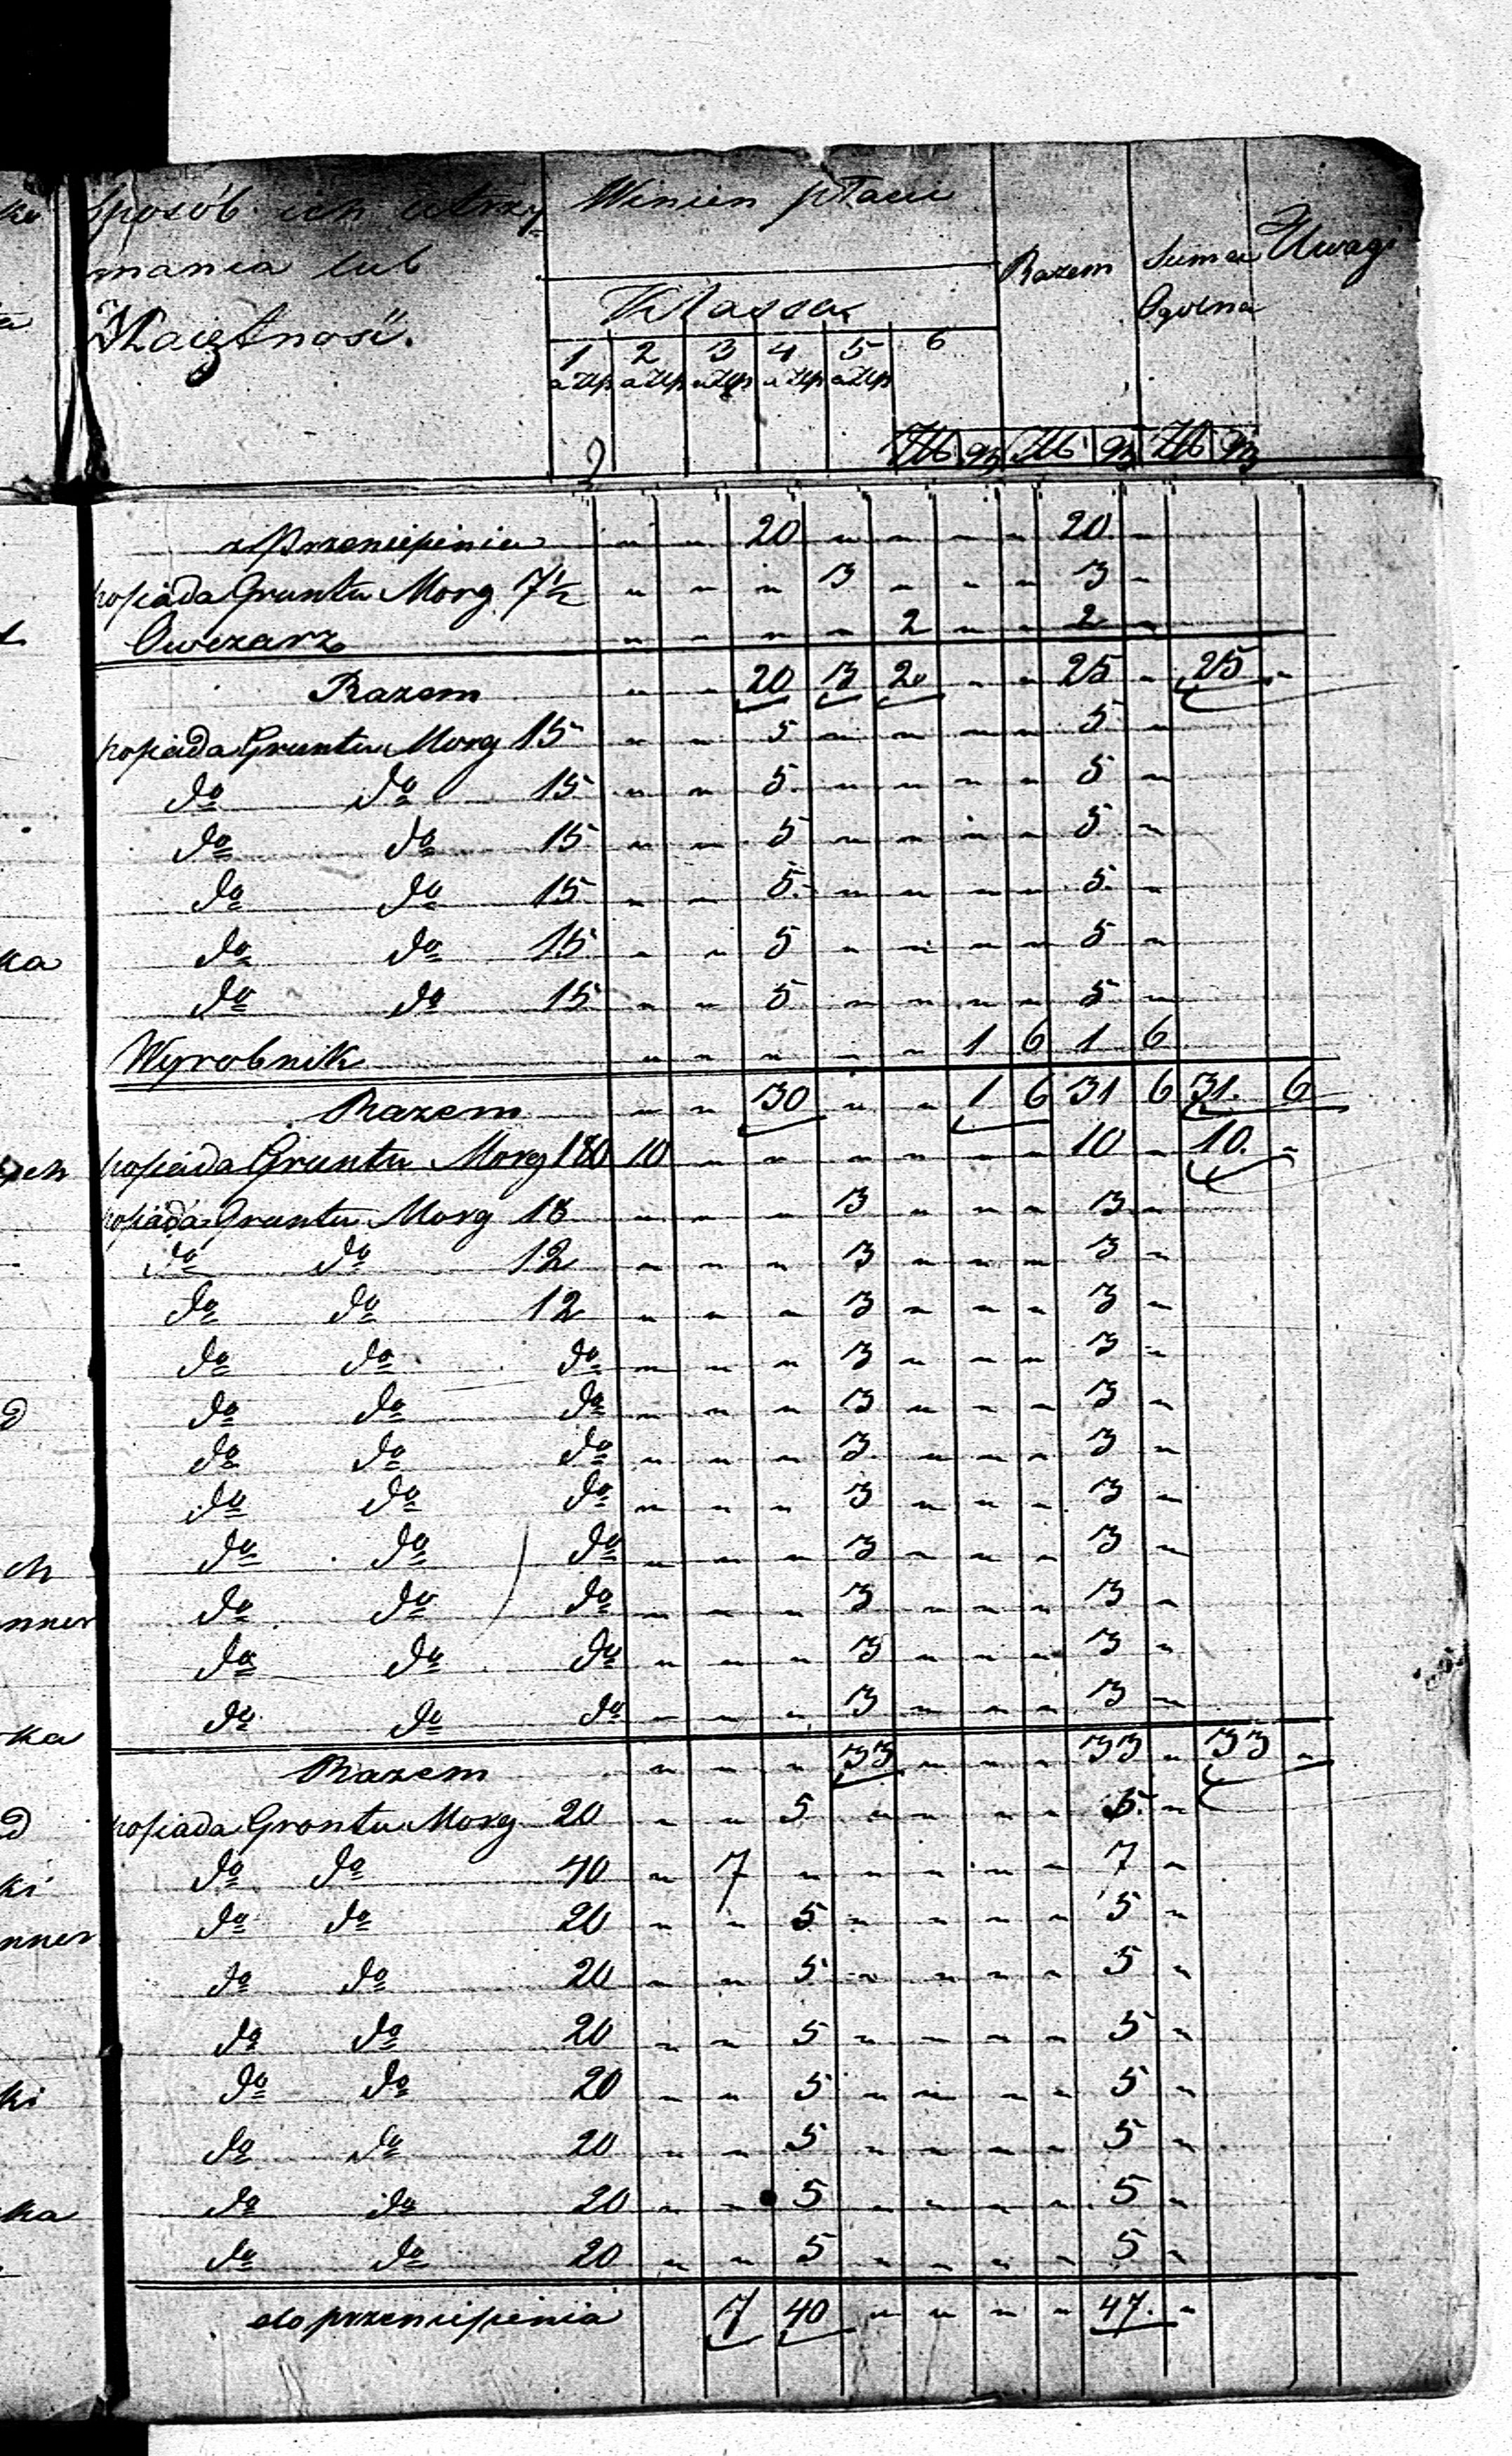 Sposób ich utrzy= Winien płacić
mania lub Razem Suma Uwagi
Majętności. Klassa Ogólna
1 2 3 4 5 6
a Złp a Złp a Złp a Złp a Złp
Złt gr Złt gr Złt gr
z Przeniesienia " " 20 " " " " 20 "
posiada Gruntu Morg 7½ " " " 3 " " " 3 "
Owczarz " " " " 2 " " 2 "
Razem " " 20 3 2 " " 25 " 25 "
posiada Gruntu Morg 15 " " 5 " " " " 5 "
do do 15 " " 5 " " " " 5 "
do do 15 " " 5 " " " " 5 "
do do 15 " " 5 " " " " 5 "
do do 15 " " 5 " " " " 5 "
do do 15 " " 5 " " " " 5 "
Wyrobnik " " " " " 1 6 1 6
Razem " " 30 " " 1 6 31 6 31 6
posiada Gruntu Morg 180 10 " " " " " " 10 " 10 "
posiada Gruntu Morg 18 " " " 3 " " " 3 "
do do 12 " " " 3 " " " 3 "
do do 12 " " " 3 " " " 3 "
do do do " " " 3 " " " 3 "
do do do " " " 3 " " " 3 "
do do do " " " 3 " " " 3 "
do do do " " " 3 " " " 3 "
do do do " " " 3 " " " 3 "
do do do " " " 3 " " " 3 "
do do do " " " 3 " " " 3 "
do do do " " " 3 " " " 3 "
Razem " " " 33 " " " 33 " 33 "
posiada Grontu Morg 20 " " 5 " " " " 5 "
do do 40 " 7 " " " " " 7 "
do do 20 " " 5 " " " " 5 "
do do 20 " " 5 " " " " 5 "
do do 20 " " 5 " " " " 5 "
do do 20 " " 5 " " " " 5 "
do do 20 " " 5 " " " " 5 "
do do 20 " " 5 " " " " 5 "
do do 20 " " 5 " " " " 5 "
do przeniesienia 7 40 " " " " 47 "